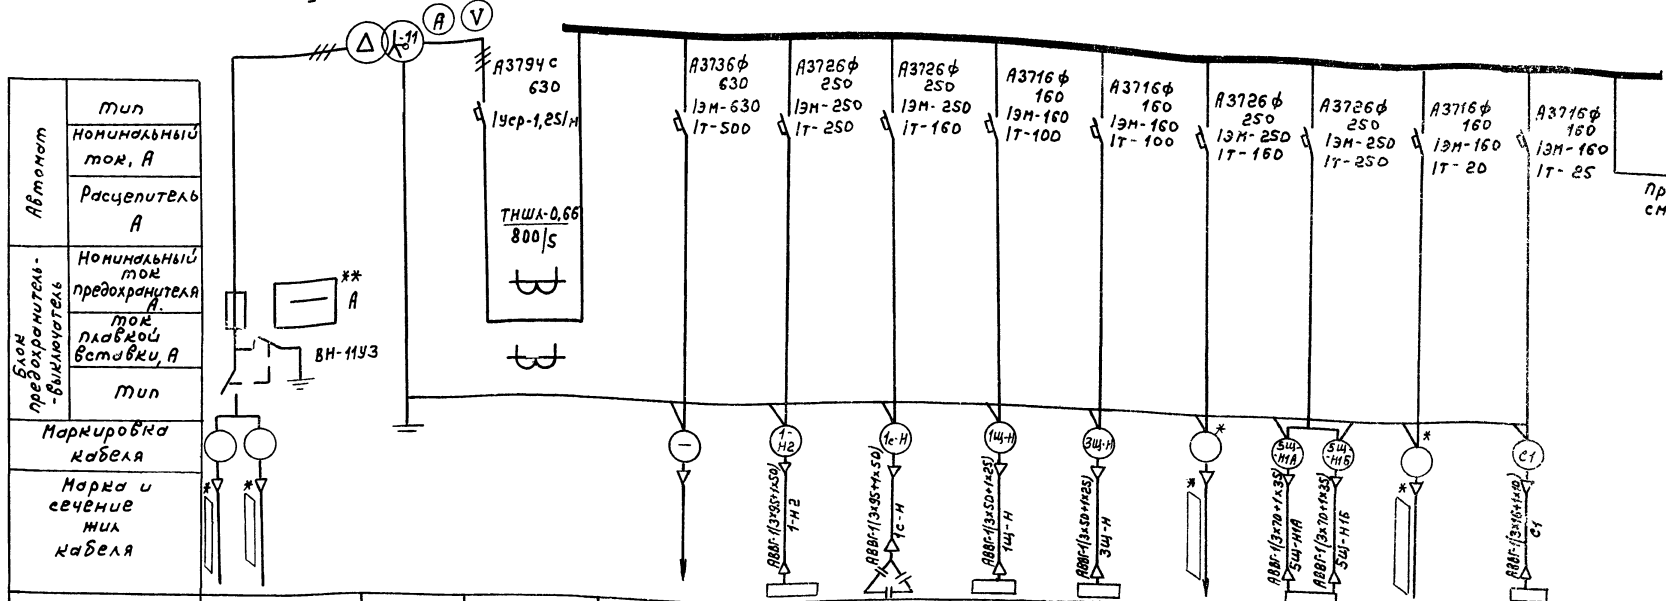 Δ
-11
A
V
Автомат
тип
номинальный
ток, А
Расцепитель
А
Блок
предохранитель-
-выключатель
Номинальный
ток
предохранителя
А.
ток
плавкой
вставки, А
тип
Маркировка
кабеля
Марка и
сечение
жил
кабеля
**
А
ВН-11У3
А3794с
630
Iуср-1,25Iн
ТНШЛ-0,66
800/5
А3736ф
630
Iэм-630
Iт-500
А3726ф
250
Iэм-250
Iт-250
А3726ф
250
Iэм-250
Iт-160
А3716ф
160
Iэм-160
Iт-100
А3716ф
160
Iэм-160
Iт-100
А3726ф
250
Iэм-250
Iт-160
А3726ф
250
Iэм-250
Iт-250
А3716ф
160
Iэм-160
Iт-20
А3716ф
160
Iэм-160
Iт-25
пр
см
*
*
–
1-
Н2
АВВГ-1(3х95+1х50)
1-Н2
1с-Н
АВВГ-1(3х95+1х50)
1с-Н
1щ-Н
АВВГ-1(3х50+1х25)
1щ-Н
3щ-Н
АВВГ-1(3х50+1х25)
3щ-Н
*
*
5щ-
-Н1А
АВВГ-1(3х70+1х35)
5щ-Н1А
5щ-
-Н1Б
АВВГ-1(3х70+1х35)
5щ-Н1Б
*
*
С1
АВВГ-1(3х16+1х10)
С1